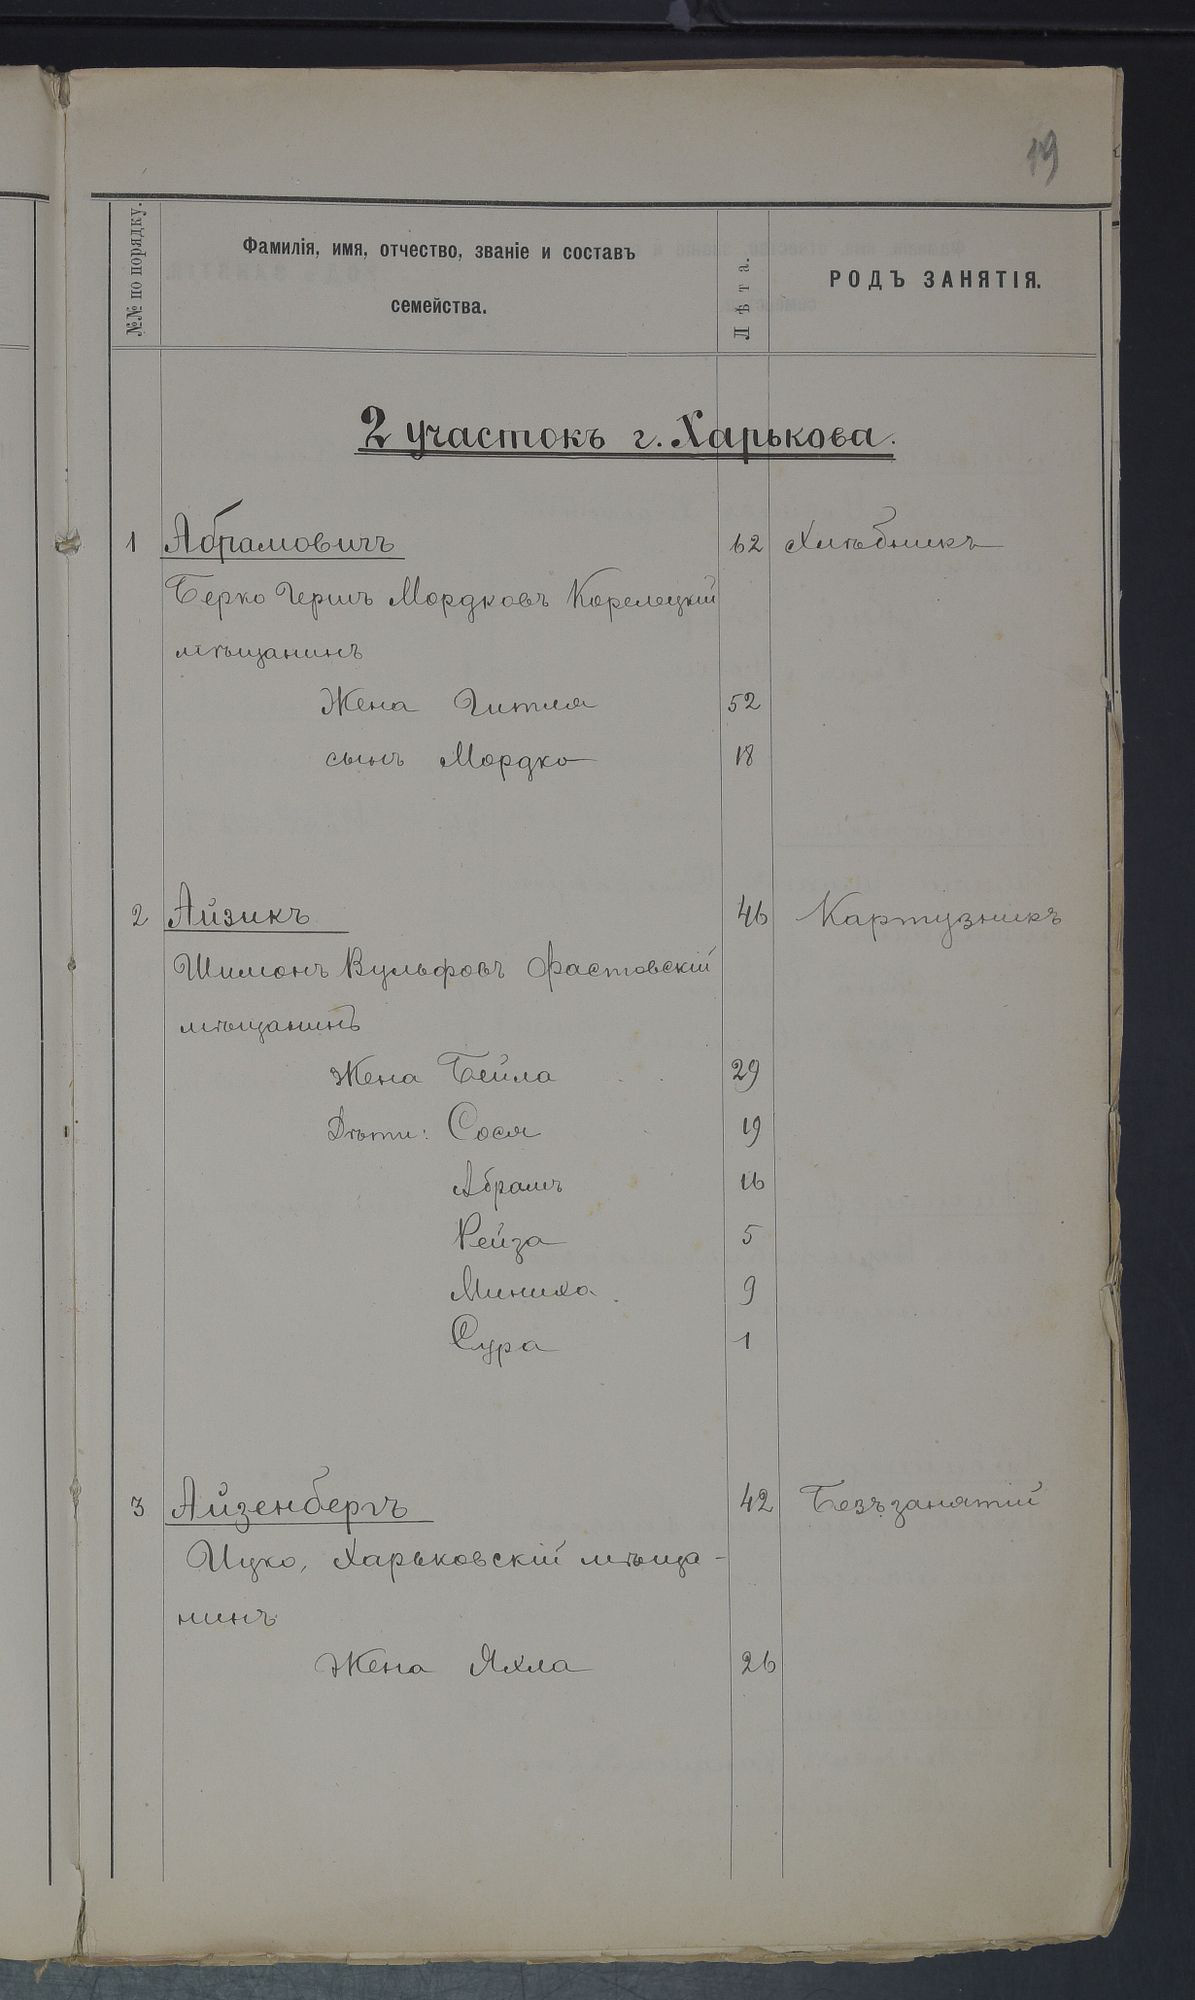 19
№№ по порядку.
Фамилія, имя, отчество, званіе и составъ
семейства.
Лѣта.
РОДЪ ЗАНЯТІЯ.
2 участокъ г. Харькова.
1 Абрамовичъ 62 Хлѣбникъ
Берко Гершъ Мордковъ Корелецкій
мѣщанинъ
Жена Гитля 52
сынъ Мордко 18
2 Айзикъ 46 Картузникъ
Шимонъ Вульфовъ Фастовскій
мѣщанинъ
Жена Бейла 29
Дѣти: Сося 19
Абрамъ 16
Рейза 5
Миниха 9
Сура 1
3 Айзенбергъ 42 Безъ занятій
Ицко, Харьковскій мѣща-
нинъ
Жена Яхла 26